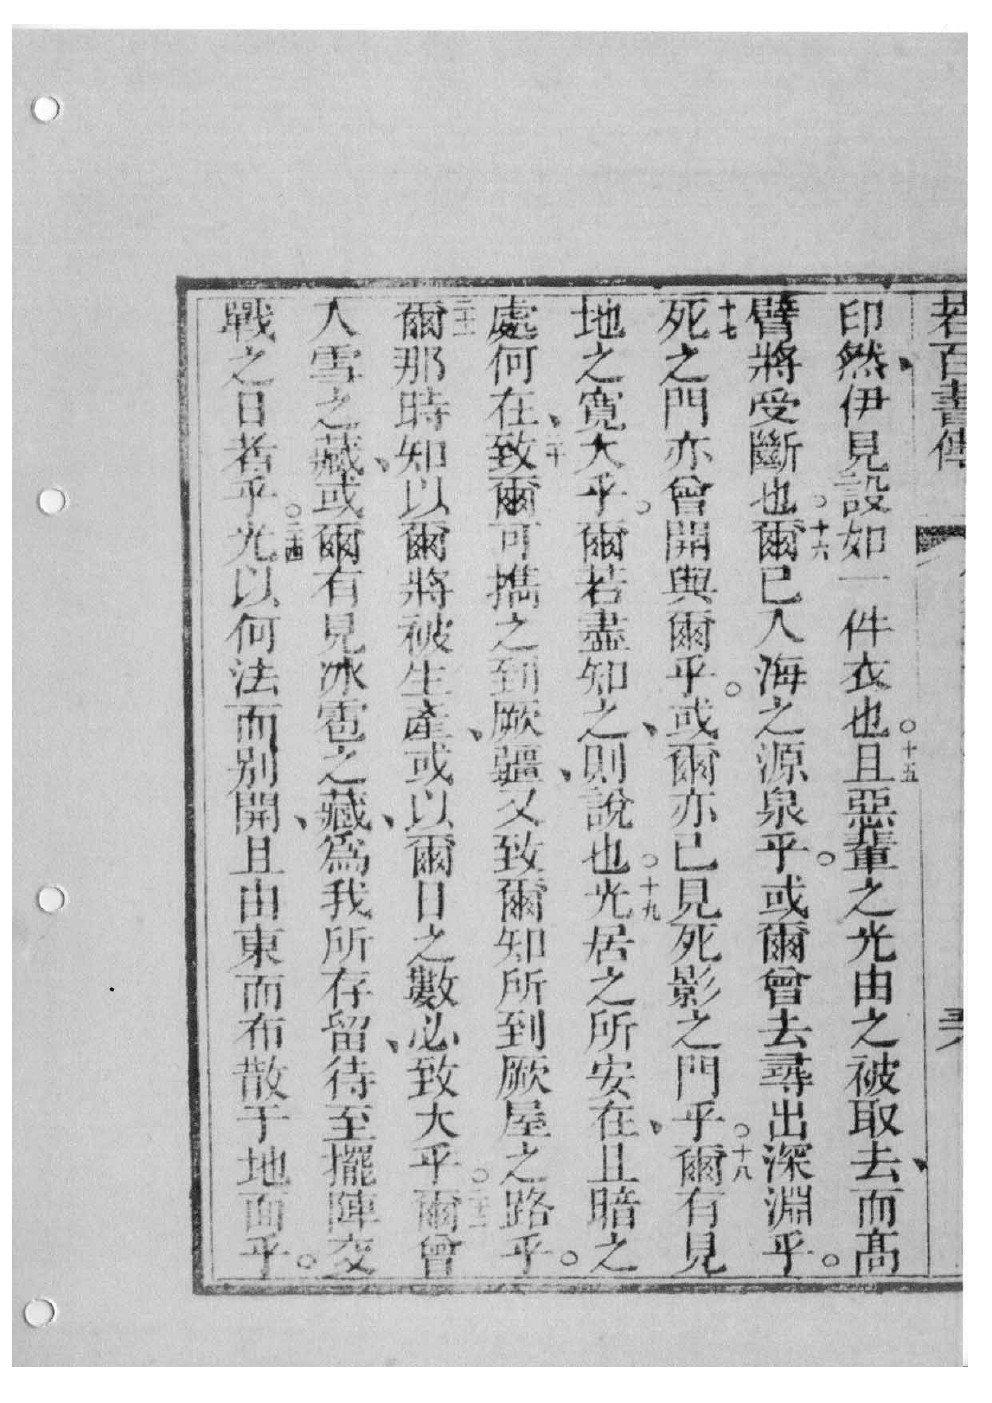 若百書傳
印、然伊見設如一件衣也。十五且惡輩之光由之被取去、而高
臂將受斷也。十六爾已入海之源泉乎。或爾曾去尋出深淵乎。
十七死之門亦曾開與爾乎。或爾亦已見死影之門乎。十八爾有見
地之寬大乎。爾若盡知之、則說也。十九光居之所安在、且暗之
處何在、二十致爾可擕之到厥疆、又致爾知所到厥屋之路乎。
二十一爾那時知以爾將被生產、或以爾日之數必致大乎。二十二爾曾
入雪之藏、或爾有見冰雹之藏、為我所存留、待至擺陣交
戰之日者乎。二十四光以何法而別開、且由東而布散于地面乎。